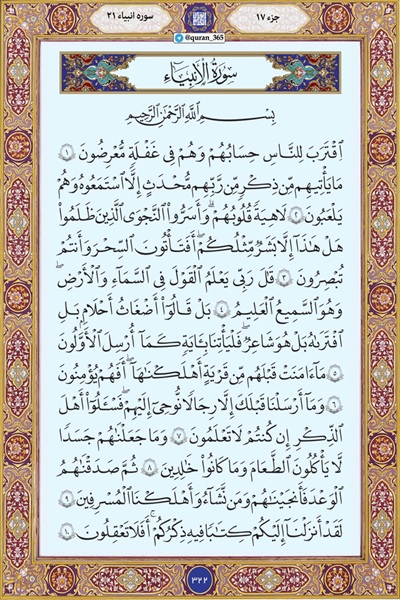 سوره انبیاء ۲۱
جزء ۱۷
@quran_365
سُورَةُ الْأَنبِيَاءِ
بِسْمِ اللَّهِ الرَّحْمَٰنِ الرَّحِيمِ
اقْتَرَبَ لِلنَّاسِ حِسَابُهُمْ وَهُمْ فِي غَفْلَةٍ مُّعْرِضُونَ ۝١
مَا يَأْتِيهِم مِّن ذِكْرٍ مِّن رَّبِّهِم مُّحْدَثٍ إِلَّا اسْتَمَعُوهُ وَهُمْ
يَلْعَبُونَ ۝٢ لَاهِيَةً قُلُوبُهُمْ ۗ وَأَسَرُّوا النَّجْوَى الَّذِينَ ظَلَمُوا
هَلْ هَٰذَا إِلَّا بَشَرٌ مِّثْلُكُمْ ۖ أَفَتَأْتُونَ السِّحْرَ وَأَنتُمْ
تُبْصِرُونَ ۝٣ قَالَ رَبِّي يَعْلَمُ الْقَوْلَ فِي السَّمَاءِ وَالْأَرْضِ ۖ
وَهُوَ السَّمِيعُ الْعَلِيمُ ۝٤ بَلْ قَالُوا أَضْغَاثُ أَحْلَامٍ بَلِ
افْتَرَاهُ بَلْ هُوَ شَاعِرٌ فَلْيَأْتِنَا بِآيَةٍ كَمَا أُرْسِلَ الْأَوَّلُونَ
۝٥ مَا آمَنَتْ قَبْلَهُم مِّن قَرْيَةٍ أَهْلَكْنَاهَا ۖ أَفَهُمْ يُؤْمِنُونَ
۝٦ وَمَا أَرْسَلْنَا قَبْلَكَ إِلَّا رِجَالًا نُّوحِي إِلَيْهِمْ ۖ فَسْئَلُوا أَهْلَ
الذِّكْرِ إِن كُنتُمْ لَا تَعْلَمُونَ ۝٧ وَمَا جَعَلْنَاهُمْ جَسَدًا
لَّا يَأْكُلُونَ الطَّعَامَ وَمَا كَانُوا خَالِدِينَ ۝٨ ثُمَّ صَدَقْنَاهُمُ
الْوَعْدَ فَأَنجَيْنَاهُمْ وَمَن نَّشَاءُ وَأَهْلَكْنَا الْمُسْرِفِينَ ۝٩
لَقَدْ أَنزَلْنَا إِلَيْكُمْ كِتَابًا فِيهِ ذِكْرُكُمْ ۖ أَفَلَا تَعْقِلُونَ ۝١٠
۳۲۲